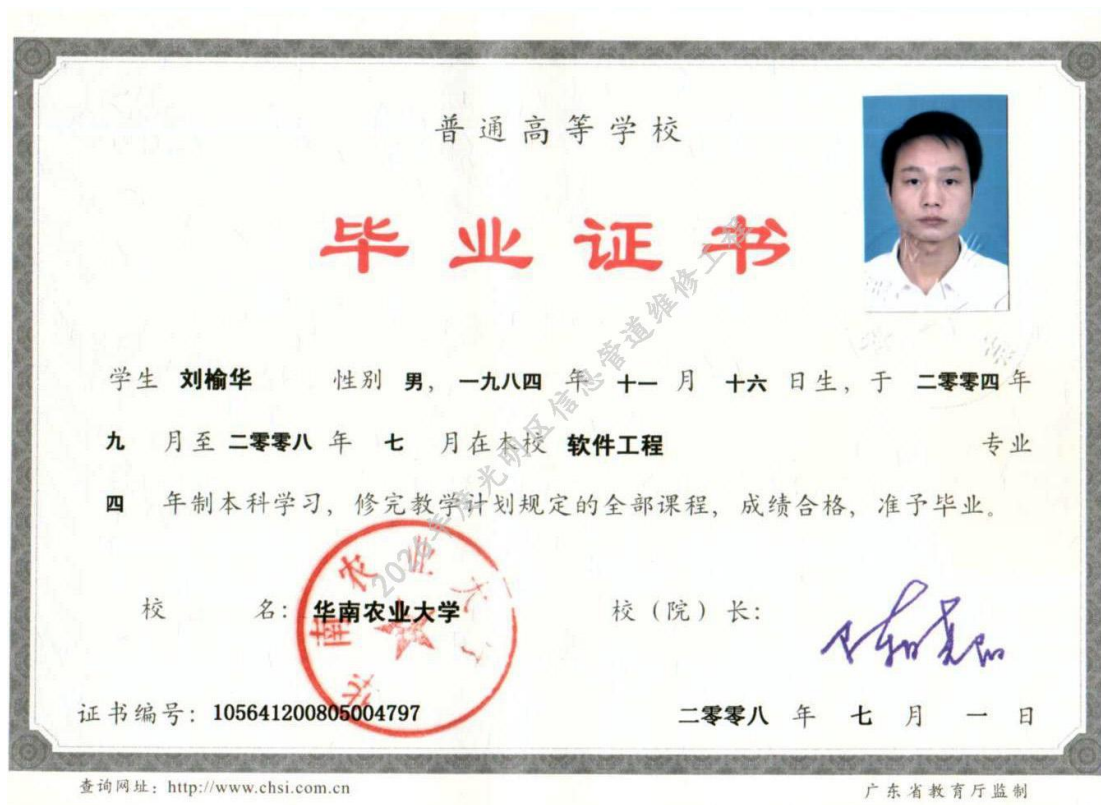 普通高等学校
毕业证书
学生 刘榆华 性别 男，一九八四 年 十一 月 十六 日生，于 二零零四 年
九 月至 二零零八 年 七 月在本校 软件工程 专业
四 年制本科学习，修完教学计划规定的全部课程，成绩合格，准予毕业。
校 名：华南农业大学 校（院）长：
华南农业大学
证书编号：105641200805004797 二零零八 年 七 月 一 日
查询网址：http://www.chsi.com.cn 广东省教育厅监制
年度光明区信息管道维修工程